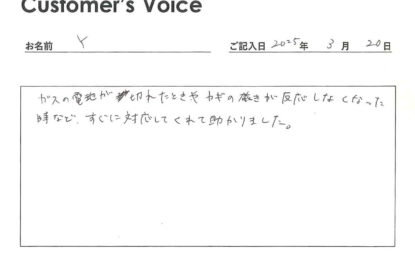 Customer's Voice
お名前 Y ご記入日 2025年 3月 20日
ガスの電池が切れたときや カギの磁きが反応しなくなった
時など、すぐに対応してくれて助かりました。